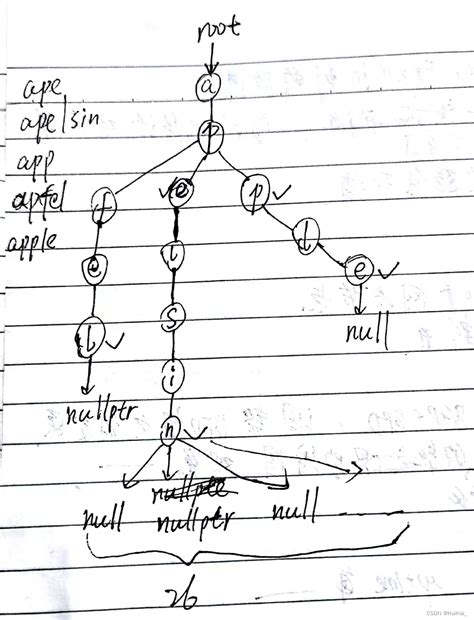 root
ape
a
apelsin
p
app
apfel
f
e
p
apple
l
l
e
e
s
null
l
i
nullptr
n
nullptr
null
nullptr
null
26
CSDN @Huihui_